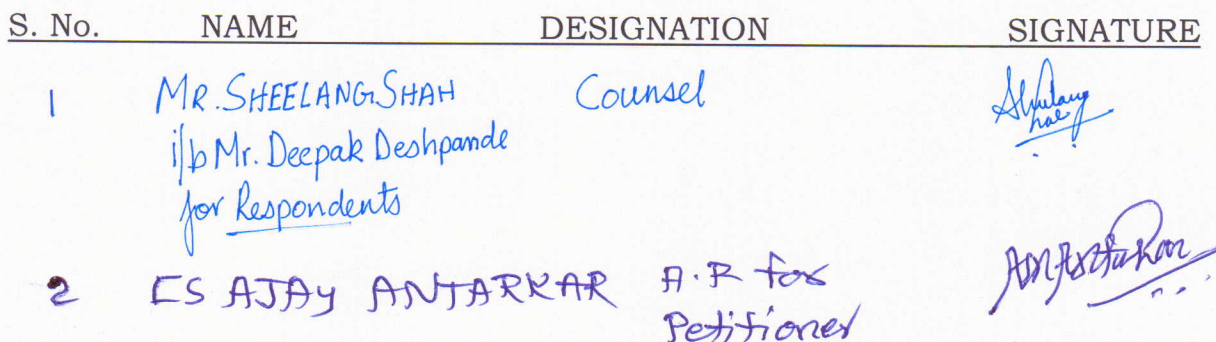 S. No. NAME DESIGNATION SIGNATURE
1 MR. SHEELANG SHAH Counsel
i/b Mr. Deepak Deshpande
for Respondents
2 CS AJAY ANTARKAR A.R for
Petitioner